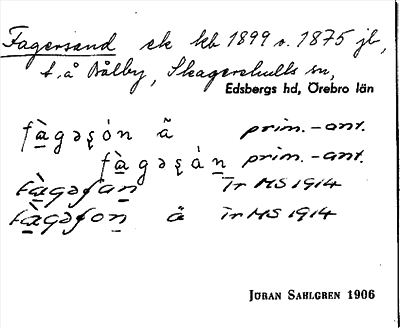 Fagersand ek kb 1899 o. 1875 jb,
t. å Bålby, Skagershults sn,
Edsbergs hd, Örebro län
fàgəʂón ã prim.-ant.
fàgəʂán prim.-ant.
fàgəʃan Ir MS 1914
fàgəʃon ä Ir MS 1914
JÖRAN SAHLGREN 1906